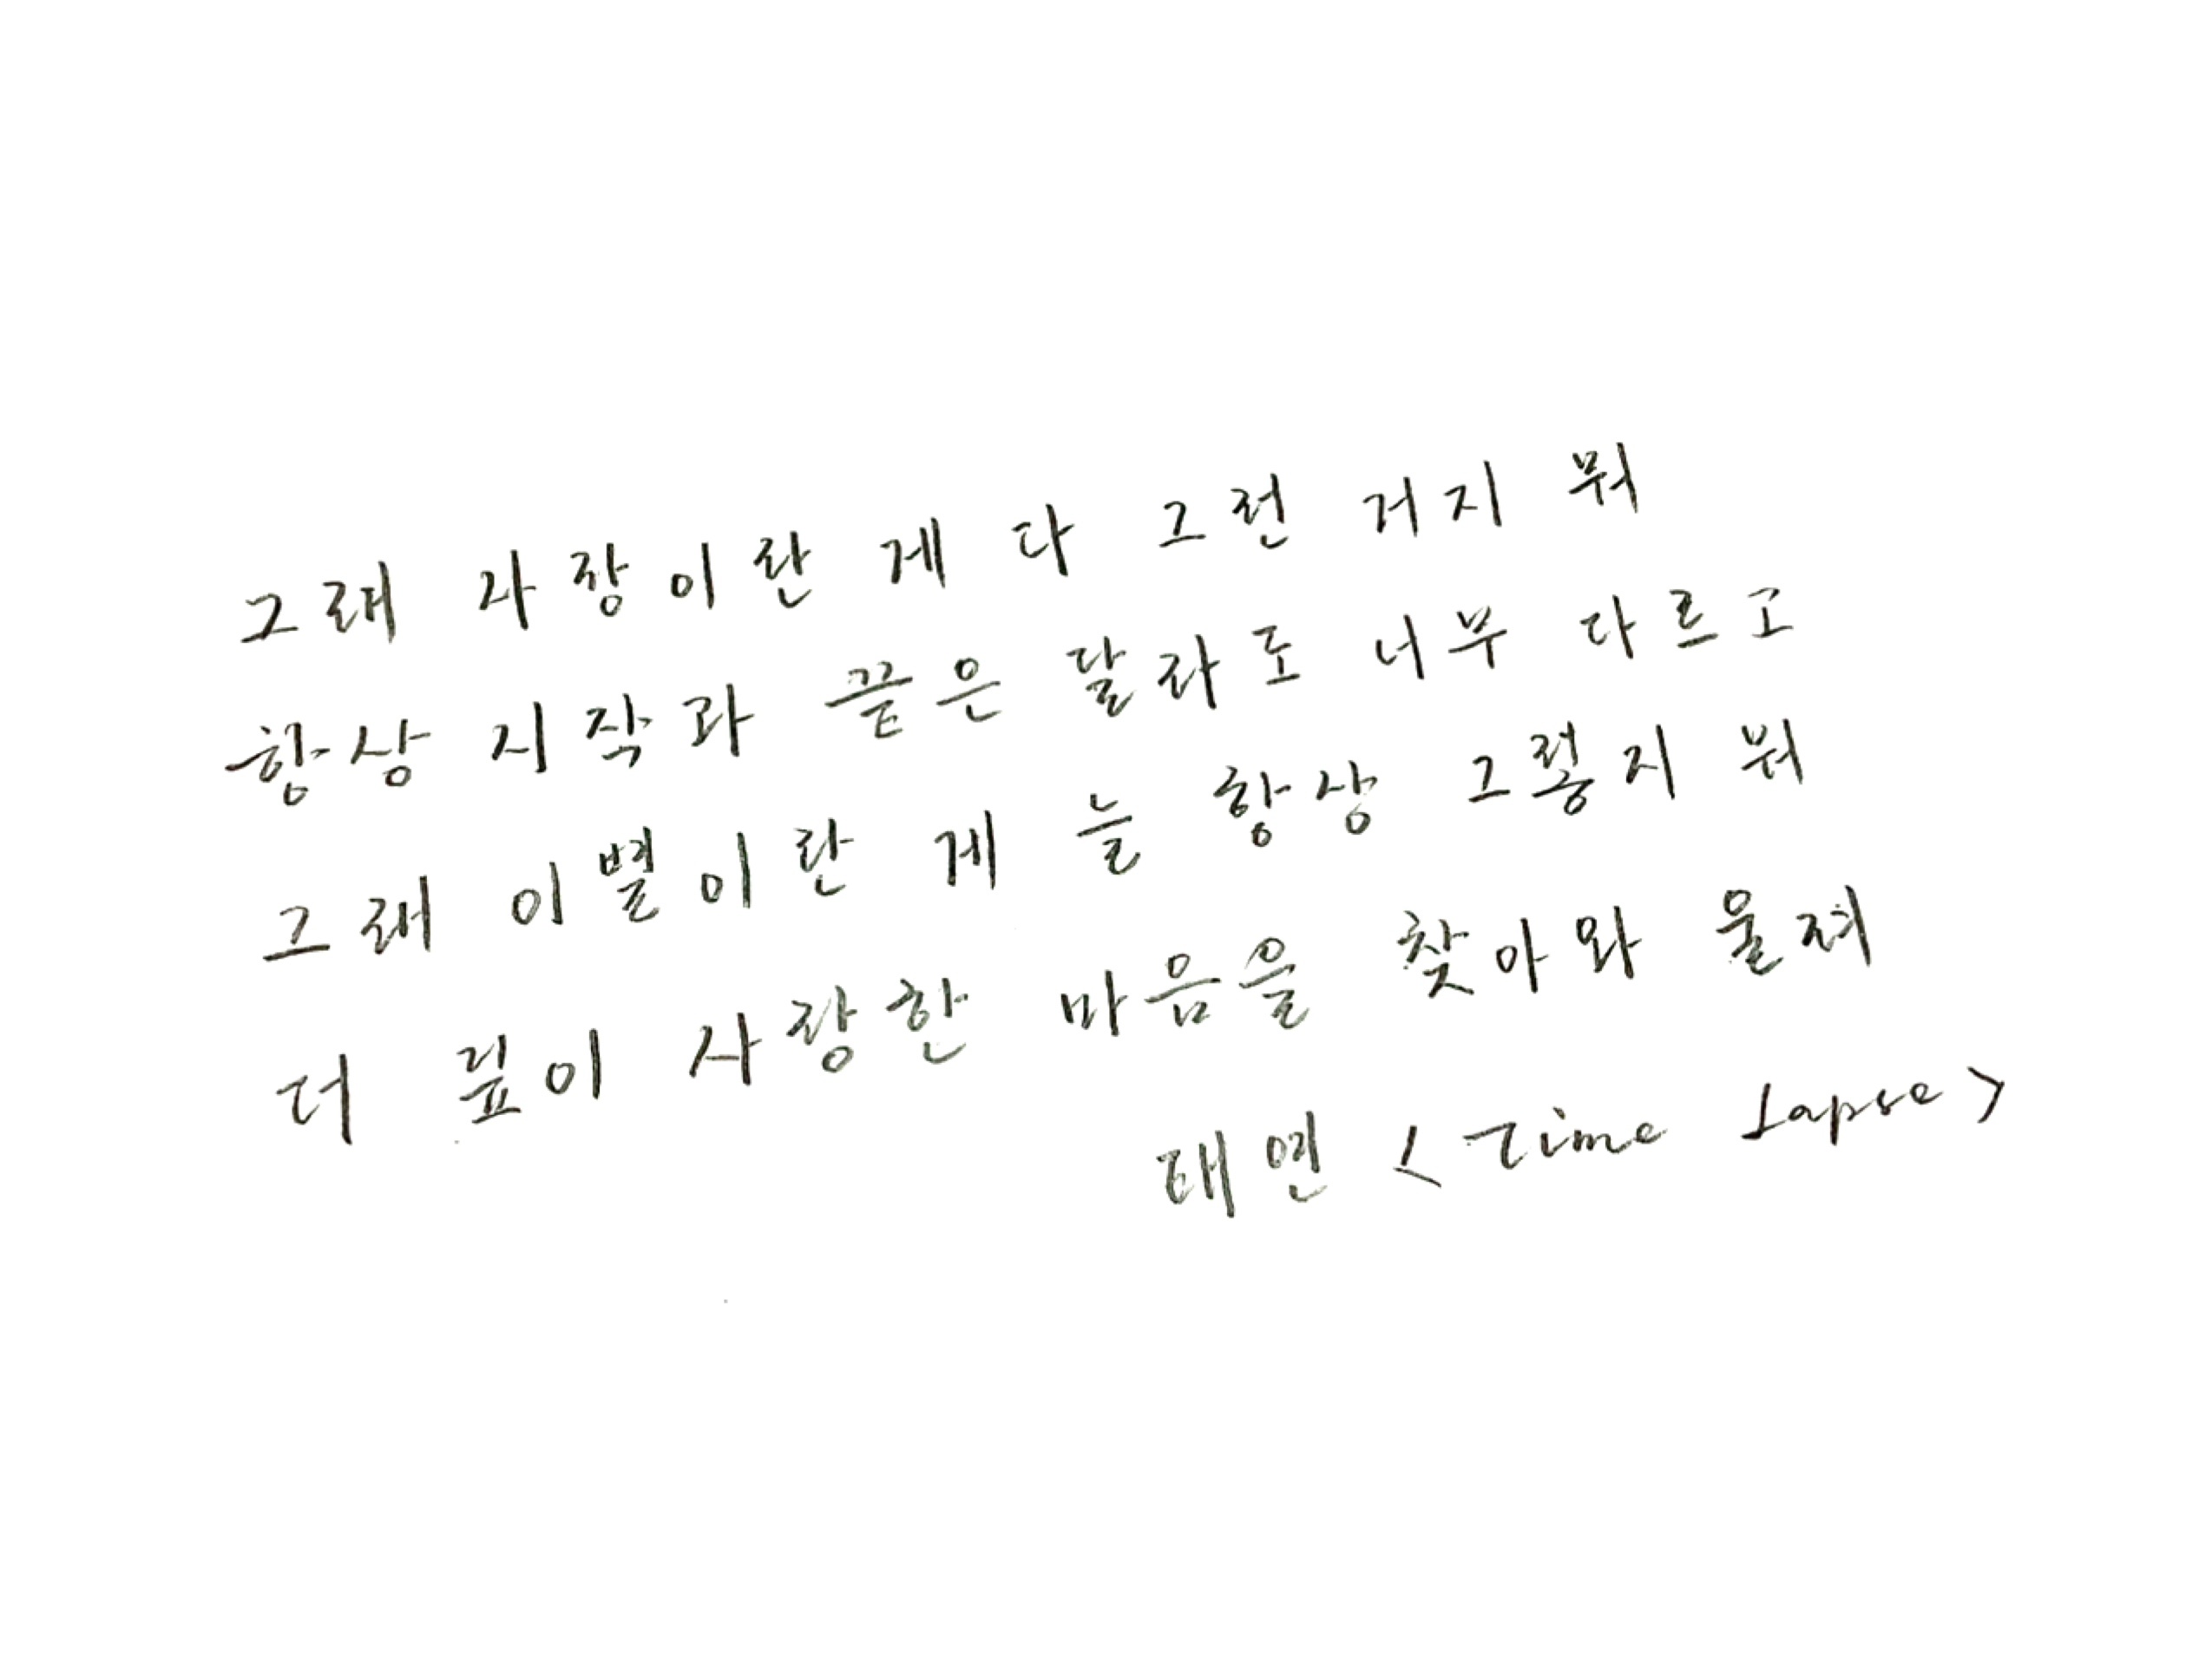 그래 사랑이란 게 다 그런 거지 뭐
항상 시작과 끝은 달라도 너무 다르고
그래 이별이란 게 늘 항상 그렇지 뭐
더 깊이 사랑한 마음을 찾아와 울려
태연 <Time Lapse>